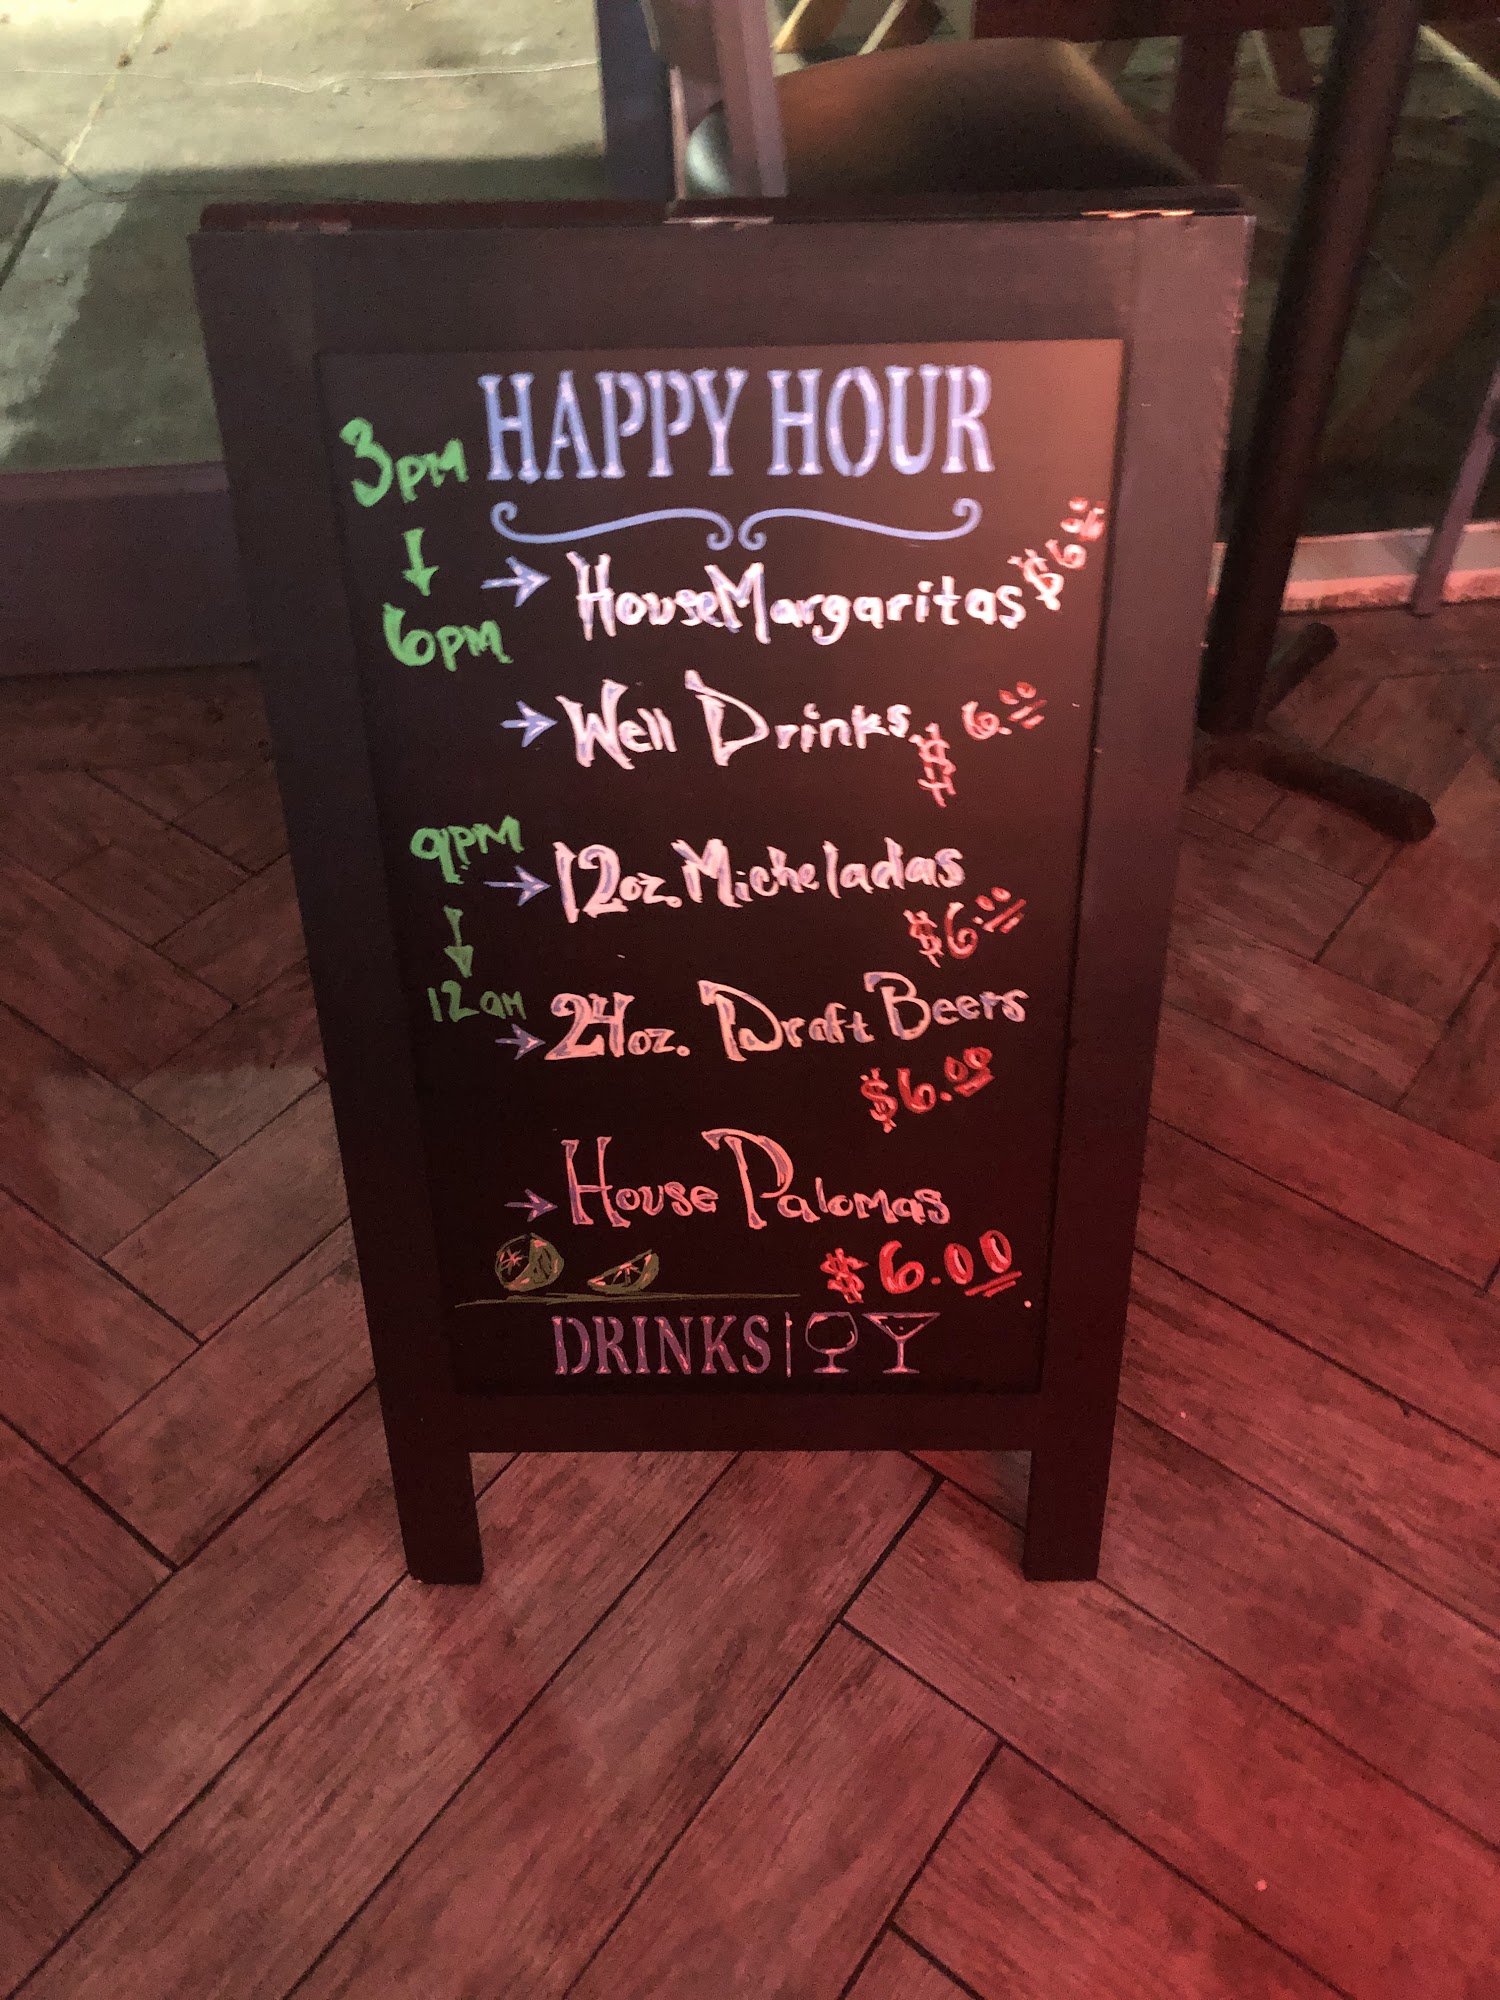 HAPPY HOUR
3PM
6PM
House Margaritas $6.00
Well Drinks $6.00
9PM
12oz. Micheladas
$6.00
12am
24oz. Draft Beers
$6.00
House Palomas
$6.00
DRINKS